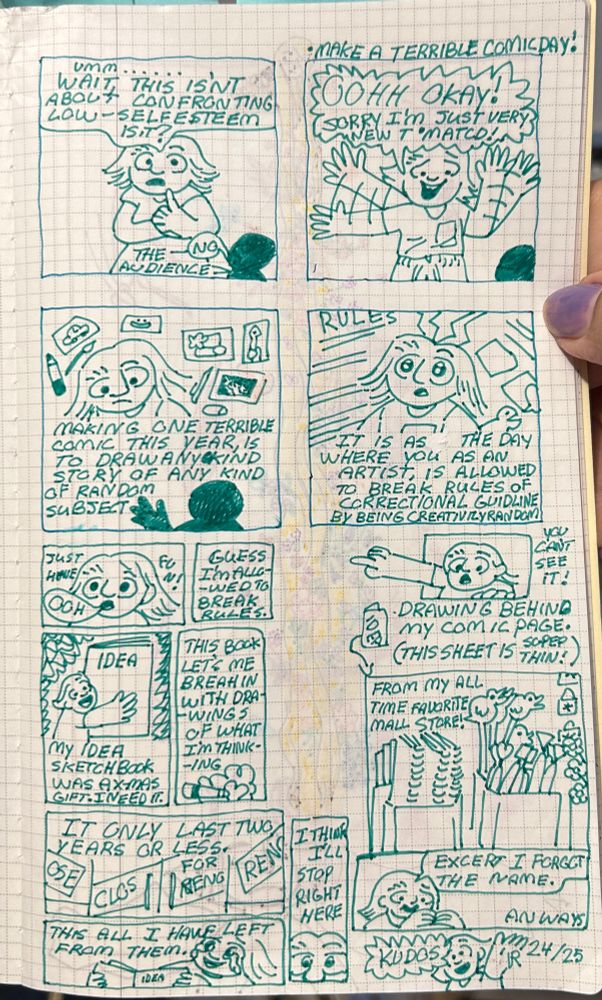 · MAKE A TERRIBLE COMIC DAY!
UMM.......
WAIT, THIS ISN'T
ABOUT CONFRONTING
LOW-SELFESTEEM
IS IT?
NO
THE
AUDIENCE
OOHH OKAY!
SORRY I'M JUST VERY
NEW T'MATCO!!
MAKING ONE TERRIBLE
COMIC THIS YEAR, IS
TO DRAW ANY KIND
STORY OF ANY KIND
OF RANDOM
SUBJECT
RULES
IT IS AS THE DAY
WHERE YOU AS AN
ARTIST, IS ALLOWED
TO BREAK RULES OF
CORRECTIONAL GUIDLINE
BY BEING CREATIVILY RANDOM
JUST
HAVE
FUN!
OOH
GUESS
I'M ALLO-
-WED TO
BREAK
RULES.
YOU
CAN'T
SEE
IT!
·DRAWING BEHIND
MY COMIC PAGE.
(THIS SHEET IS SUPER
THIN!)
IDEA
MY IDEA
SKETCHBOOK
WAS A XMAS
GIFT. I NEED IT.
THIS BOOK
LET'S ME
BREAH IN
WITH DRA-
-WINGS
OF WHAT
I'M THINK-
-ING
FROM MY ALL
TIME FAVORITE
MALL STORE!
IT ONLY LAST TWO
YEARS OR LESS.
OSE
CLOS
FOR
RENG
RENG
I THINK
I'LL
STOP
RIGHT
HERE
EXCEPT I FORGOT
THE NAME.
ANWAYS
THIS ALL I HAVE LEFT
FROM THEM.
IDEA
KUDOS
24/25